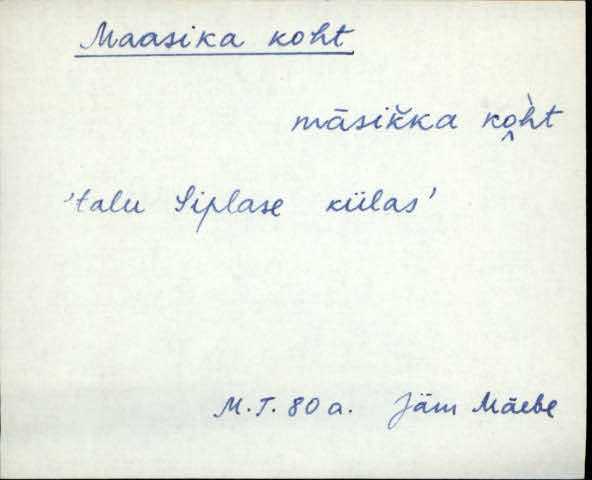 Maasika koht
māsik̆ka ko̭h̀t
'talu Siplase külas'
M.T. 80 a. Jäm Mäebe